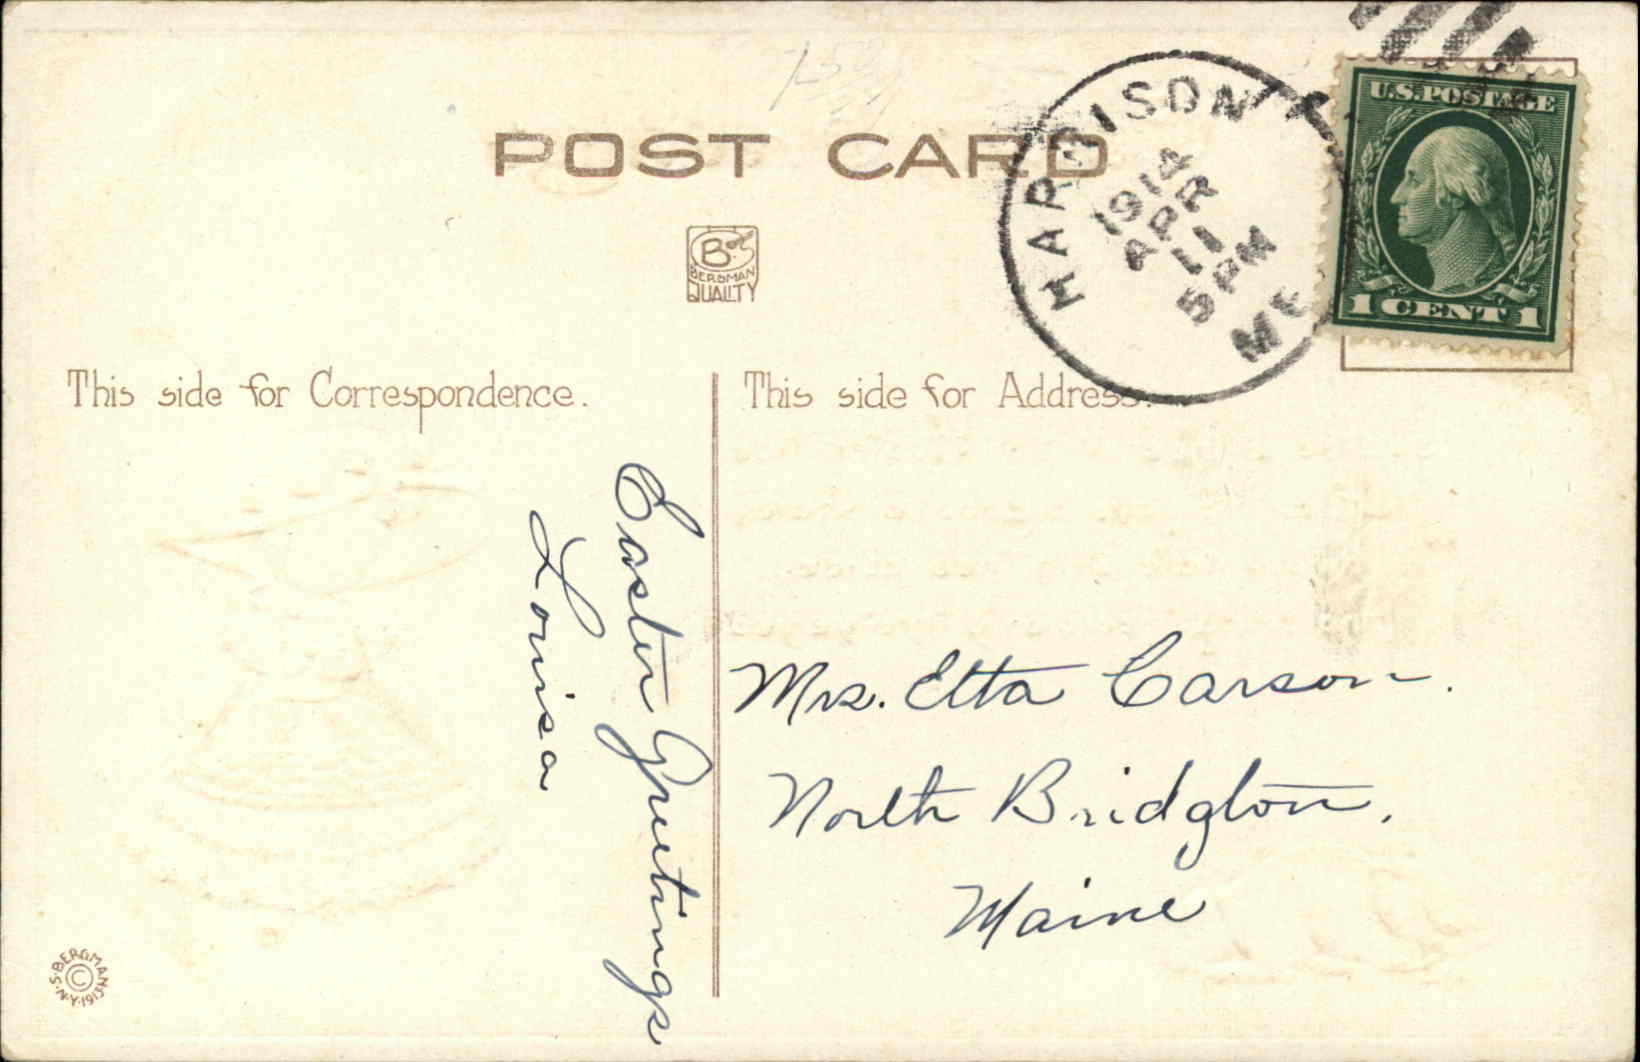 POST CARD
HARRISON
1914
APR
11
5 PM
ME
U.S. POSTAGE
1 CENT 1
B
BERGMAN
QUALITY
This side for Correspondence.
This side for Address.
Easter Greetings
Louisa
Mrs. Etta Carson.
North Bridgton,
Maine
S. BERGMAN
© N.Y. 1913